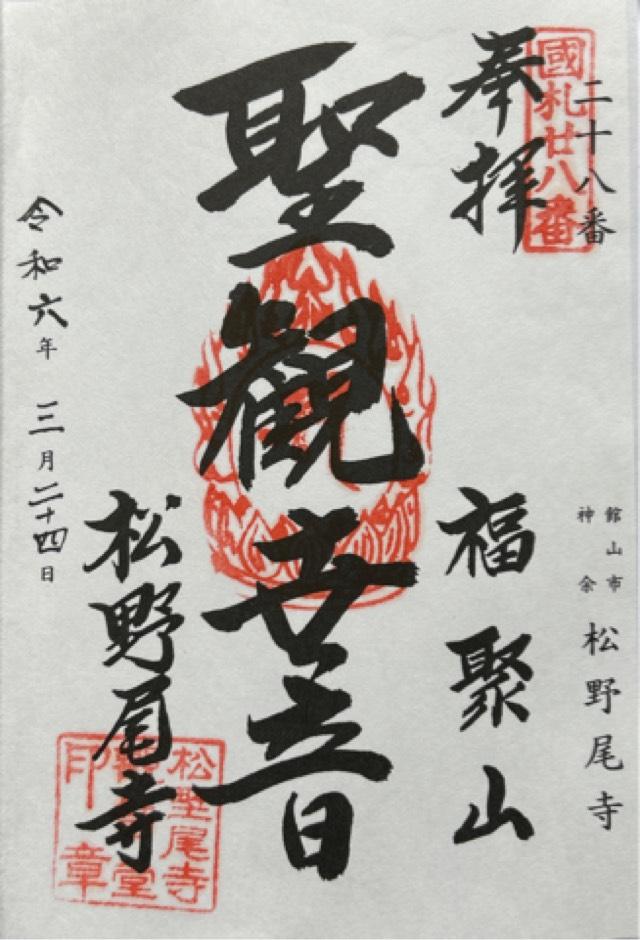 二十八番
國札廿八番
奉拝
館山市
神余
松野尾寺
福聚山
聖観世音
松野尾寺
松野尾寺
印章
令和六年三月二十四日